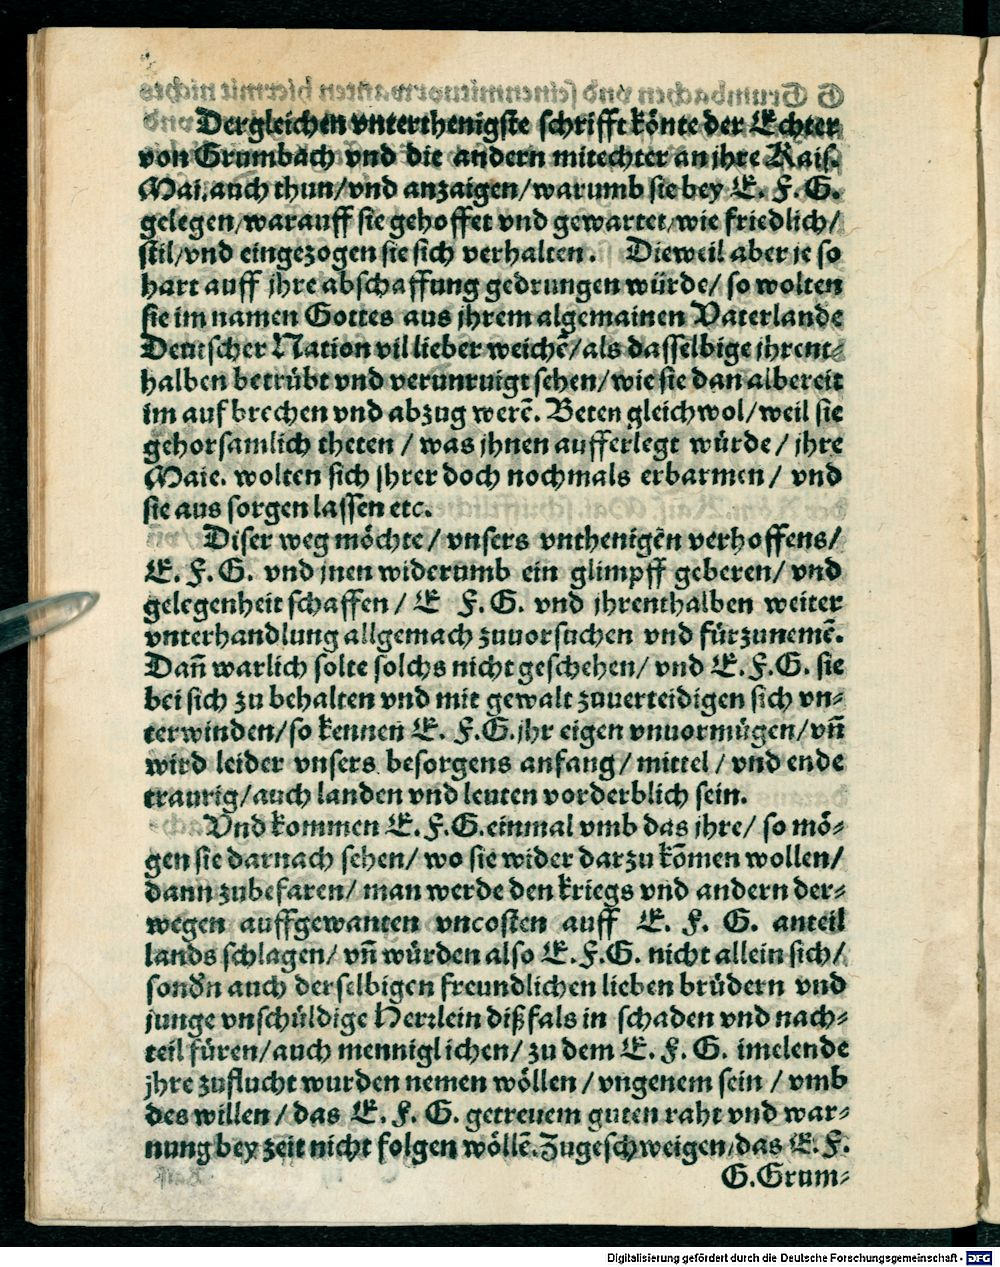 Dergleichen vnterthenigste schrifft könte der Echter
von Grumbach vnd die andern mitechter an ihre Kais.
Mai. auch thun/vnd anzaigen/warumb sie bey E. F. G.
gelegen/warauff sie gehoffet vnd gewartet/wie friedlich/
stil/vnd eingezogen sie sich verhalten. Dieweil aber je so
hart auff jhre abschaffung gedrungen würde/ so wolten
sie im namen Gottes aus jhrem algemainen Vaterlande
Deutscher Nation vil lieber weichē/als dasselbige jhrent-
halben betrübt vnd verunruigt sehen/wie sie dan albereit
im aufbrechen vnd abzug werē. Beten gleichwol/weil sie
gehorsamlich theten / was jhnen aufferlegt würde / jhre
Maie. wolten sich jhrer doch nochmals erbarmen / vnd
sie aus sorgen lassen etc.
Diser weg möchte / vnsers vnthenigēn verhoffens/
E. F. G. vnd jnen widerumb ein glimpff geberen/ vnd
gelegenheit schaffen / E F. G. vnd jhrenthalben weiter
vnterhandlung allgemach zuuorsuchen vnd fürzunemē.
Dañ warlich solte solchs nicht geschehen/ vnd E. F. G. sie
bei sich zu behalten vnd mit gewalt zuuerteidigen sich vn-
terwinden/so kennen E. F. G. jhr eigen vnuormügen/vñ
wird leider vnsers besorgens anfang/ mittel / vnd ende
traurig/auch landen vnd leuten vorderblich sein.
Vnd kommen E. F. G. einmal vmb das jhre/ so mö-
gen sie darnach sehen/ wo sie wider darzu kōmen wollen/
dann zubefaren/ man werde den kriegs vnd andern der-
wegen auffgewanten vncosten auff E. F. G. anteil
lands schlagen/ vñ würden also E. F. G. nicht allein sich/
sondn auch derselbigen freundlichen lieben brüdern vnd
junge vnschüldige Herrlein dißfals in schaden vnd nach-
teil füren/auch menniglichen/ zu dem E. F. G. im elende
jhre zuflucht wurden nemen wöllen / vngenem sein / vmb
des willen / das E. F. G. getreuem guten raht vnd war-
nung bey zeit nicht folgen wöllē. Zugeschweigen/das E. F.
G. Grum-
Digitalisierung gefördert durch die Deutsche Forschungsgemeinschaft - DFG